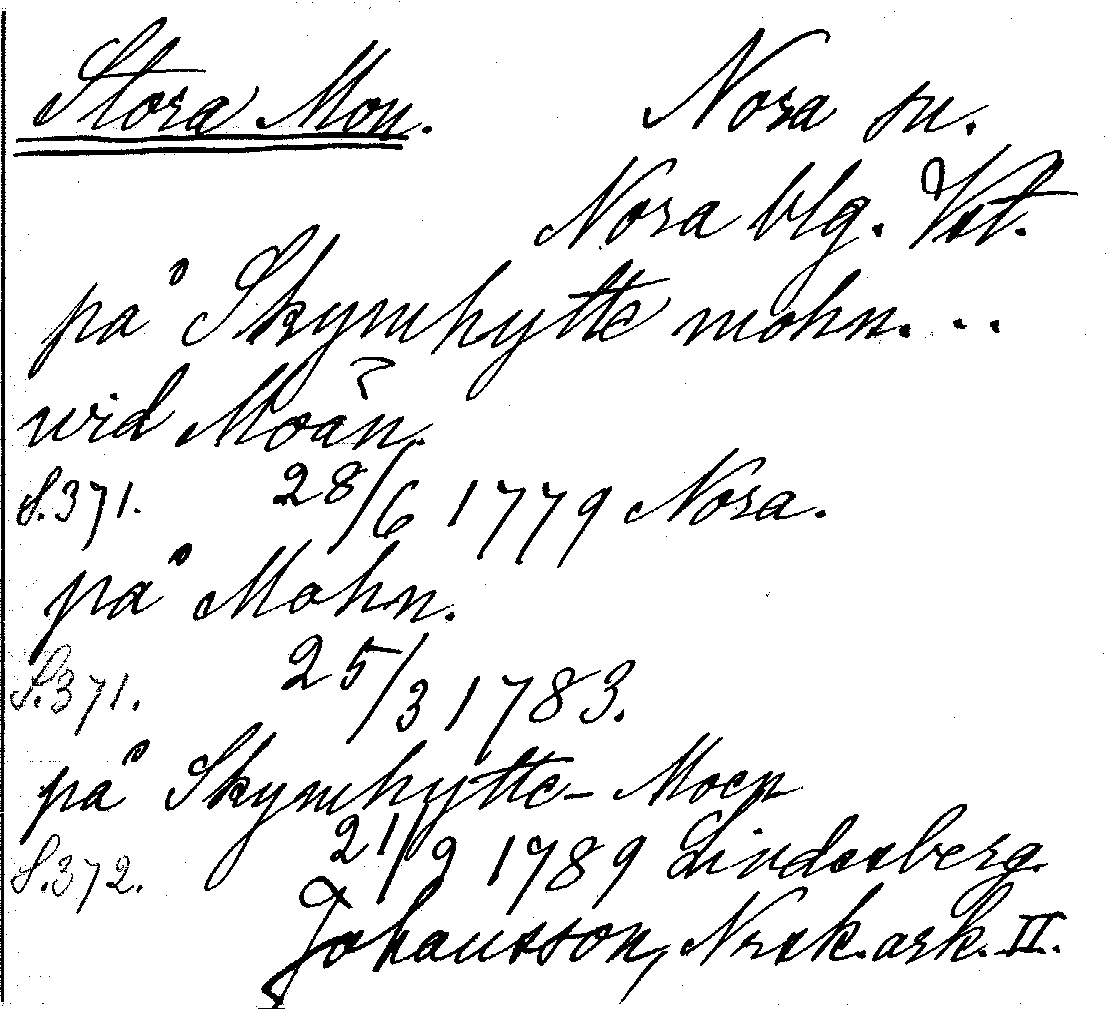 Stora Mon. Nora sn.
Nora blg. Vstl.
på Skymhytte mohn...
wid Moån.
S.371. 28/6 1779 Nora.
på Mohn.
S.371. 25/3 1783.
på Skymhytte- Moen
S.372. 21/9 1789 Lindesberg.
Johansson, Nrsk. ark. II.